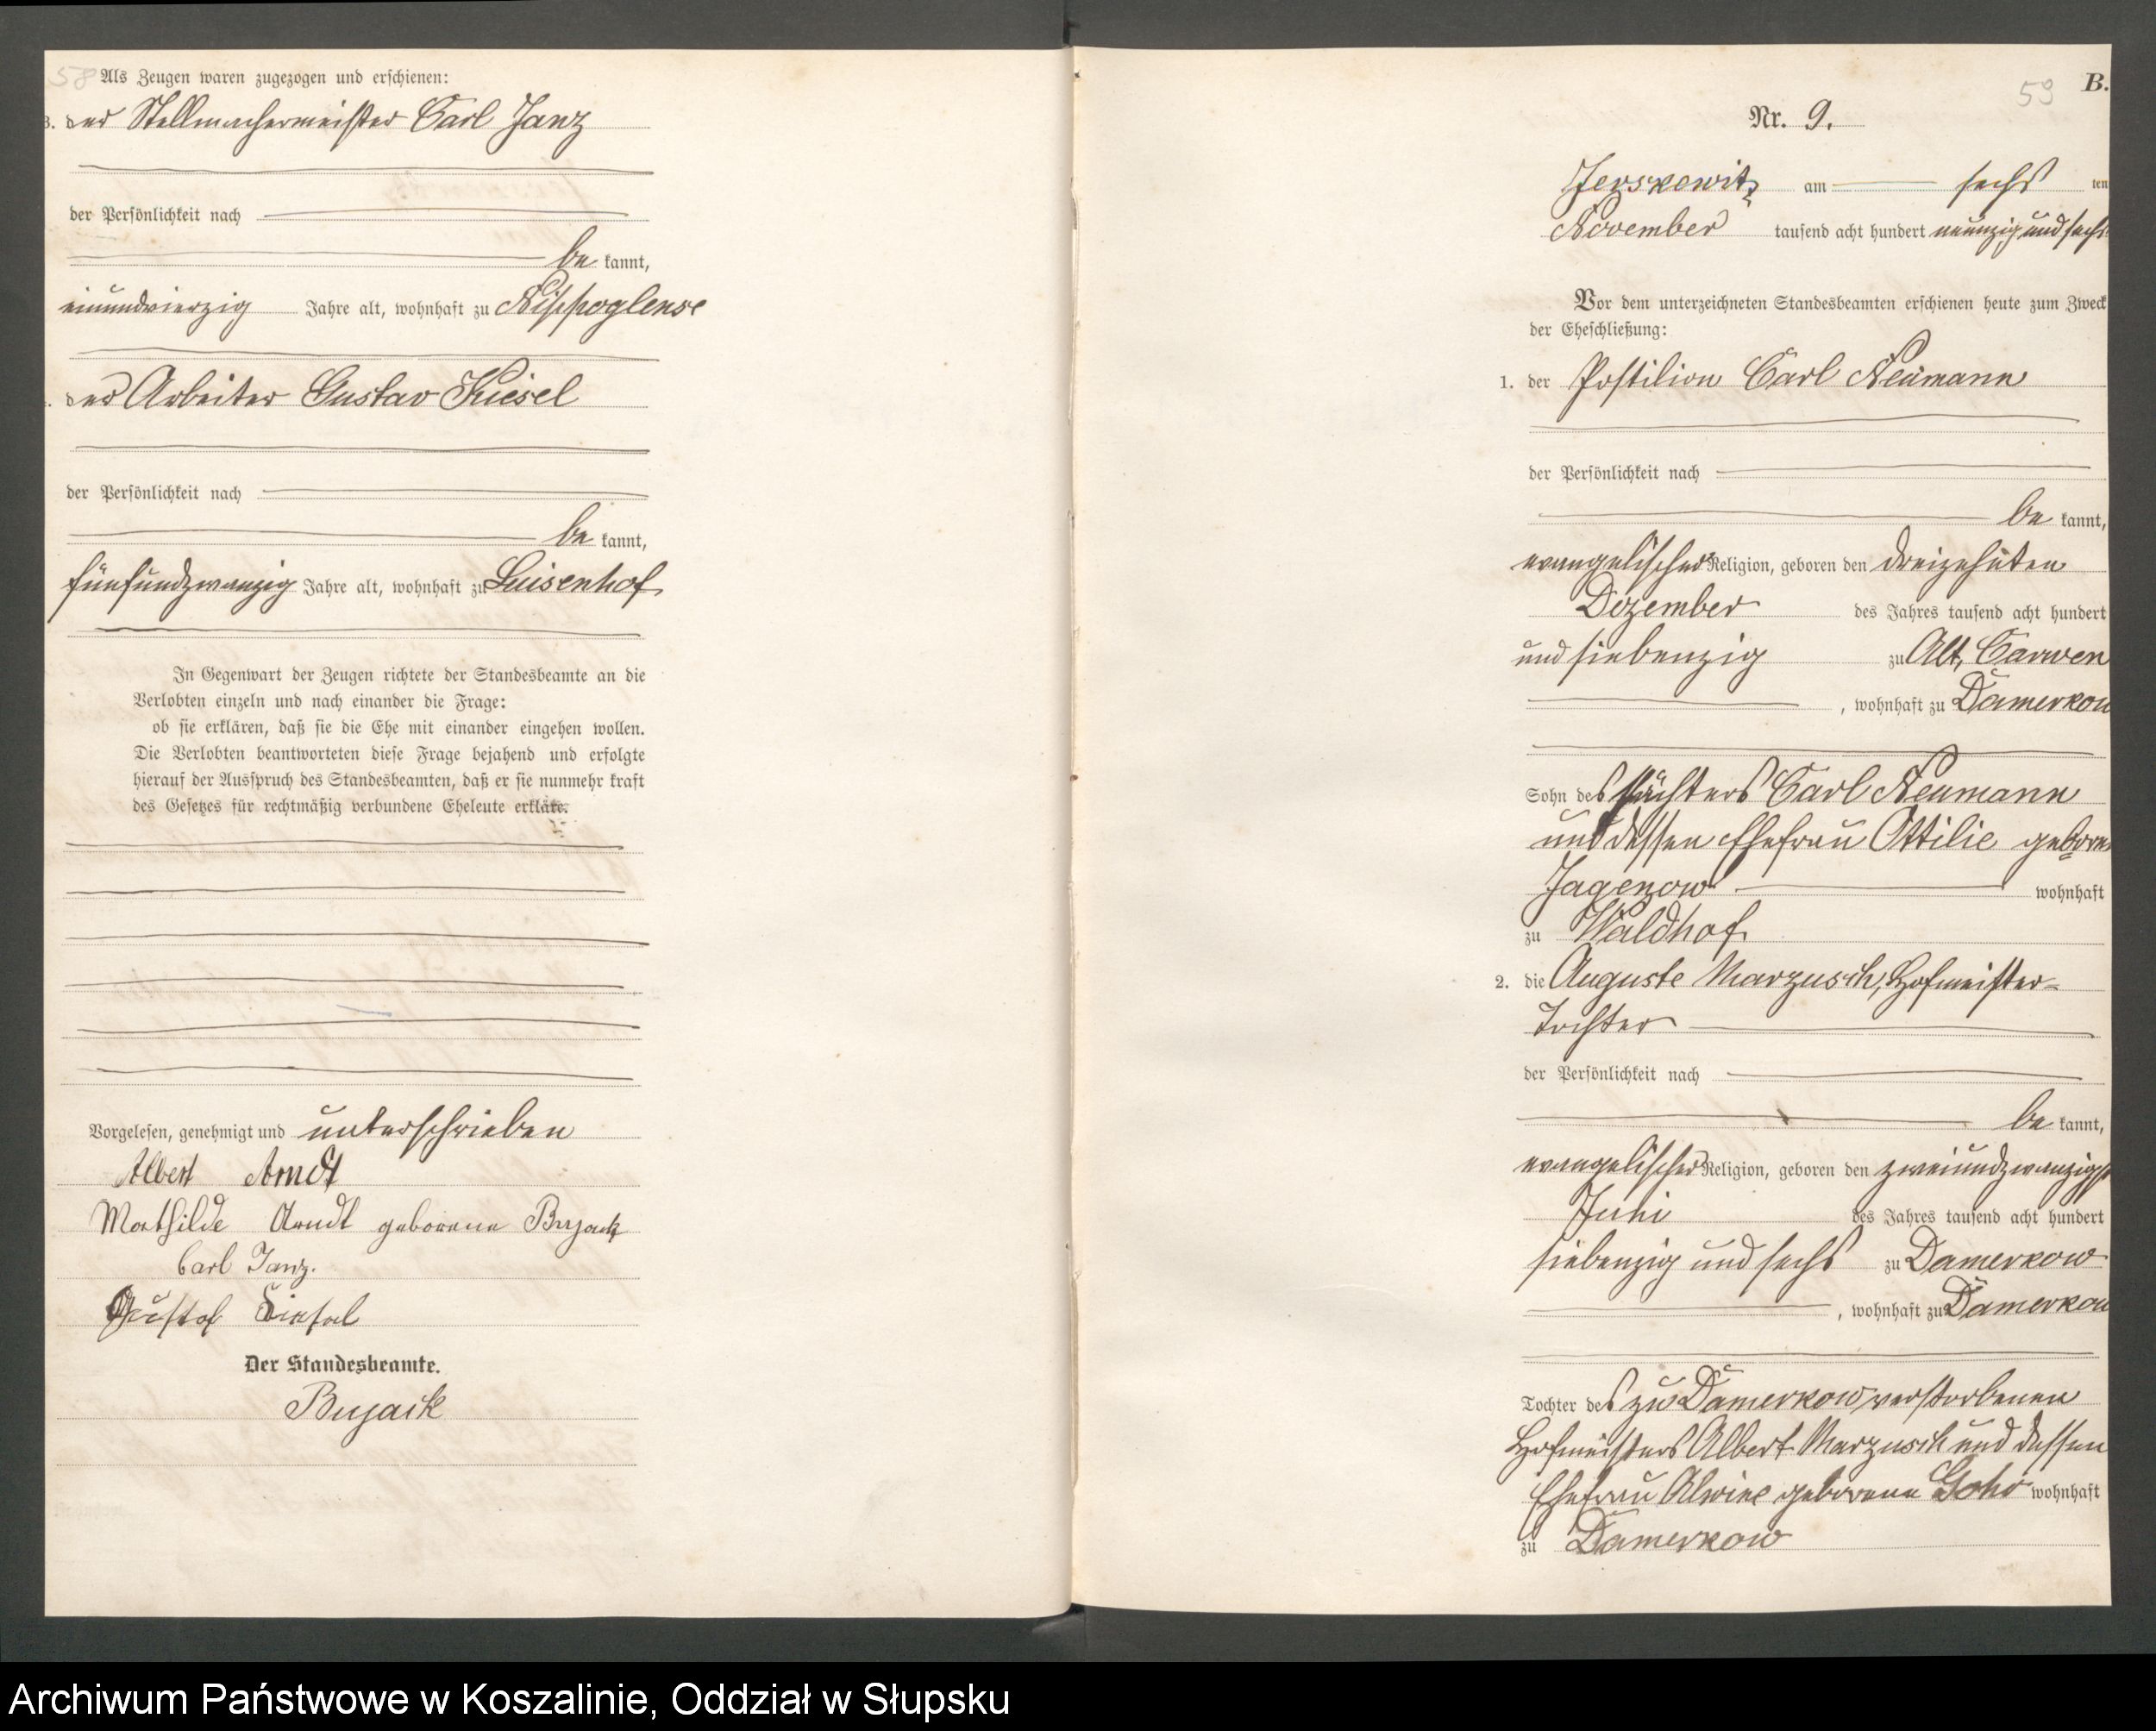 58 Als Zeugen waren zugezogen und erschienen:
3. der Stellmachermeister Carl Janz
der Persönlichkeit nach
be kannt,
einundvierzig Jahre alt, wohnhaft zu Nippoglense
der Arbeiter Gustav Kiesel
der Persönlichkeit nach
be kannt,
fünfundzwanzig Jahre alt, wohnhaft zu Luisenhof
In Gegenwart der Zeugen richtete der Standesbeamte an die
Verlobten einzeln und nach einander die Frage:
ob sie erklären, daß sie die Ehe mit einander eingehen wollen.
Die Verlobten beantworteten diese Frage bejahend und erfolgte
hierauf der Ausspruch des Standesbeamten, daß er sie nunmehr kraft
des Gesetzes für rechtmäßig verbundene Eheleute erkläre.
Vorgelesen, genehmigt und unterschrieben
Albert Arndt
Mathilde Arndt geborene Bujack
Carl Janz.
Gustaf
Der Standesbeamte.
Bujack
59 B.
Nr. 9.
Jerskewitz am sechs ten
November tausend acht hundert neunzig und sechs.
Vor dem unterzeichneten Standesbeamten erschienen heute zum Zweck
der Eheschließung:
1. der Postilion Carl Neumann
der Persönlichkeit nach
be kannt,
evangelischer Religion, geboren den dreizehnten
Dezember des Jahres tausend acht hundert
und siebenzig zu Alt, Carwen
, wohnhaft zu Damerkow
Sohn des Pächters Carl Neumann
und dessen Ehefrau Ottilie geborene
Jagenow wohnhaft
zu Waldhof
2. die Auguste Marzusch, Hofmeister-
Tochter
der Persönlichkeit nach
be kannt,
evangelischer Religion, geboren den zweiundzwanzigst
Juni des Jahres tausend acht hundert
siebenzig und sechs zu Damerkow
, wohnhaft zu Damerkow
Tochter des zu Damerkow verstorbenen
Hofmeisters Albert Marzusch und dessen
Ehefrau Alwine geborene Gohr wohnhaft
zu Damerkow
Archiwum Państwowe w Koszalinie, Oddział w Słupsku